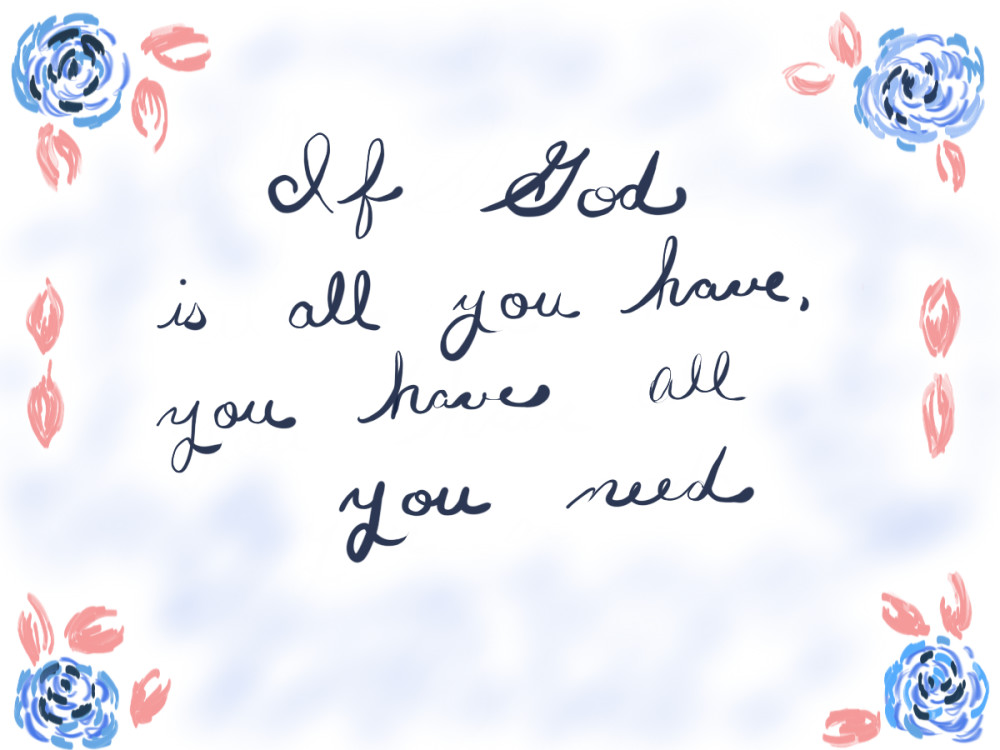 If God
is all you have,
you have all
you need